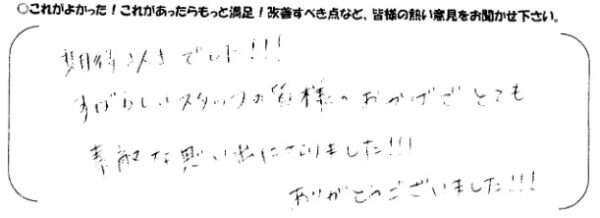 ○これがよかった！これがあったらもっと満足！改善すべき点など、皆様の熱い意見をお聞かせ下さい。
期待以上でした!!!
すばらしいスタッフの皆様のおかげでとても
素敵な思い出になりました!!!
ありがとうございました!!!